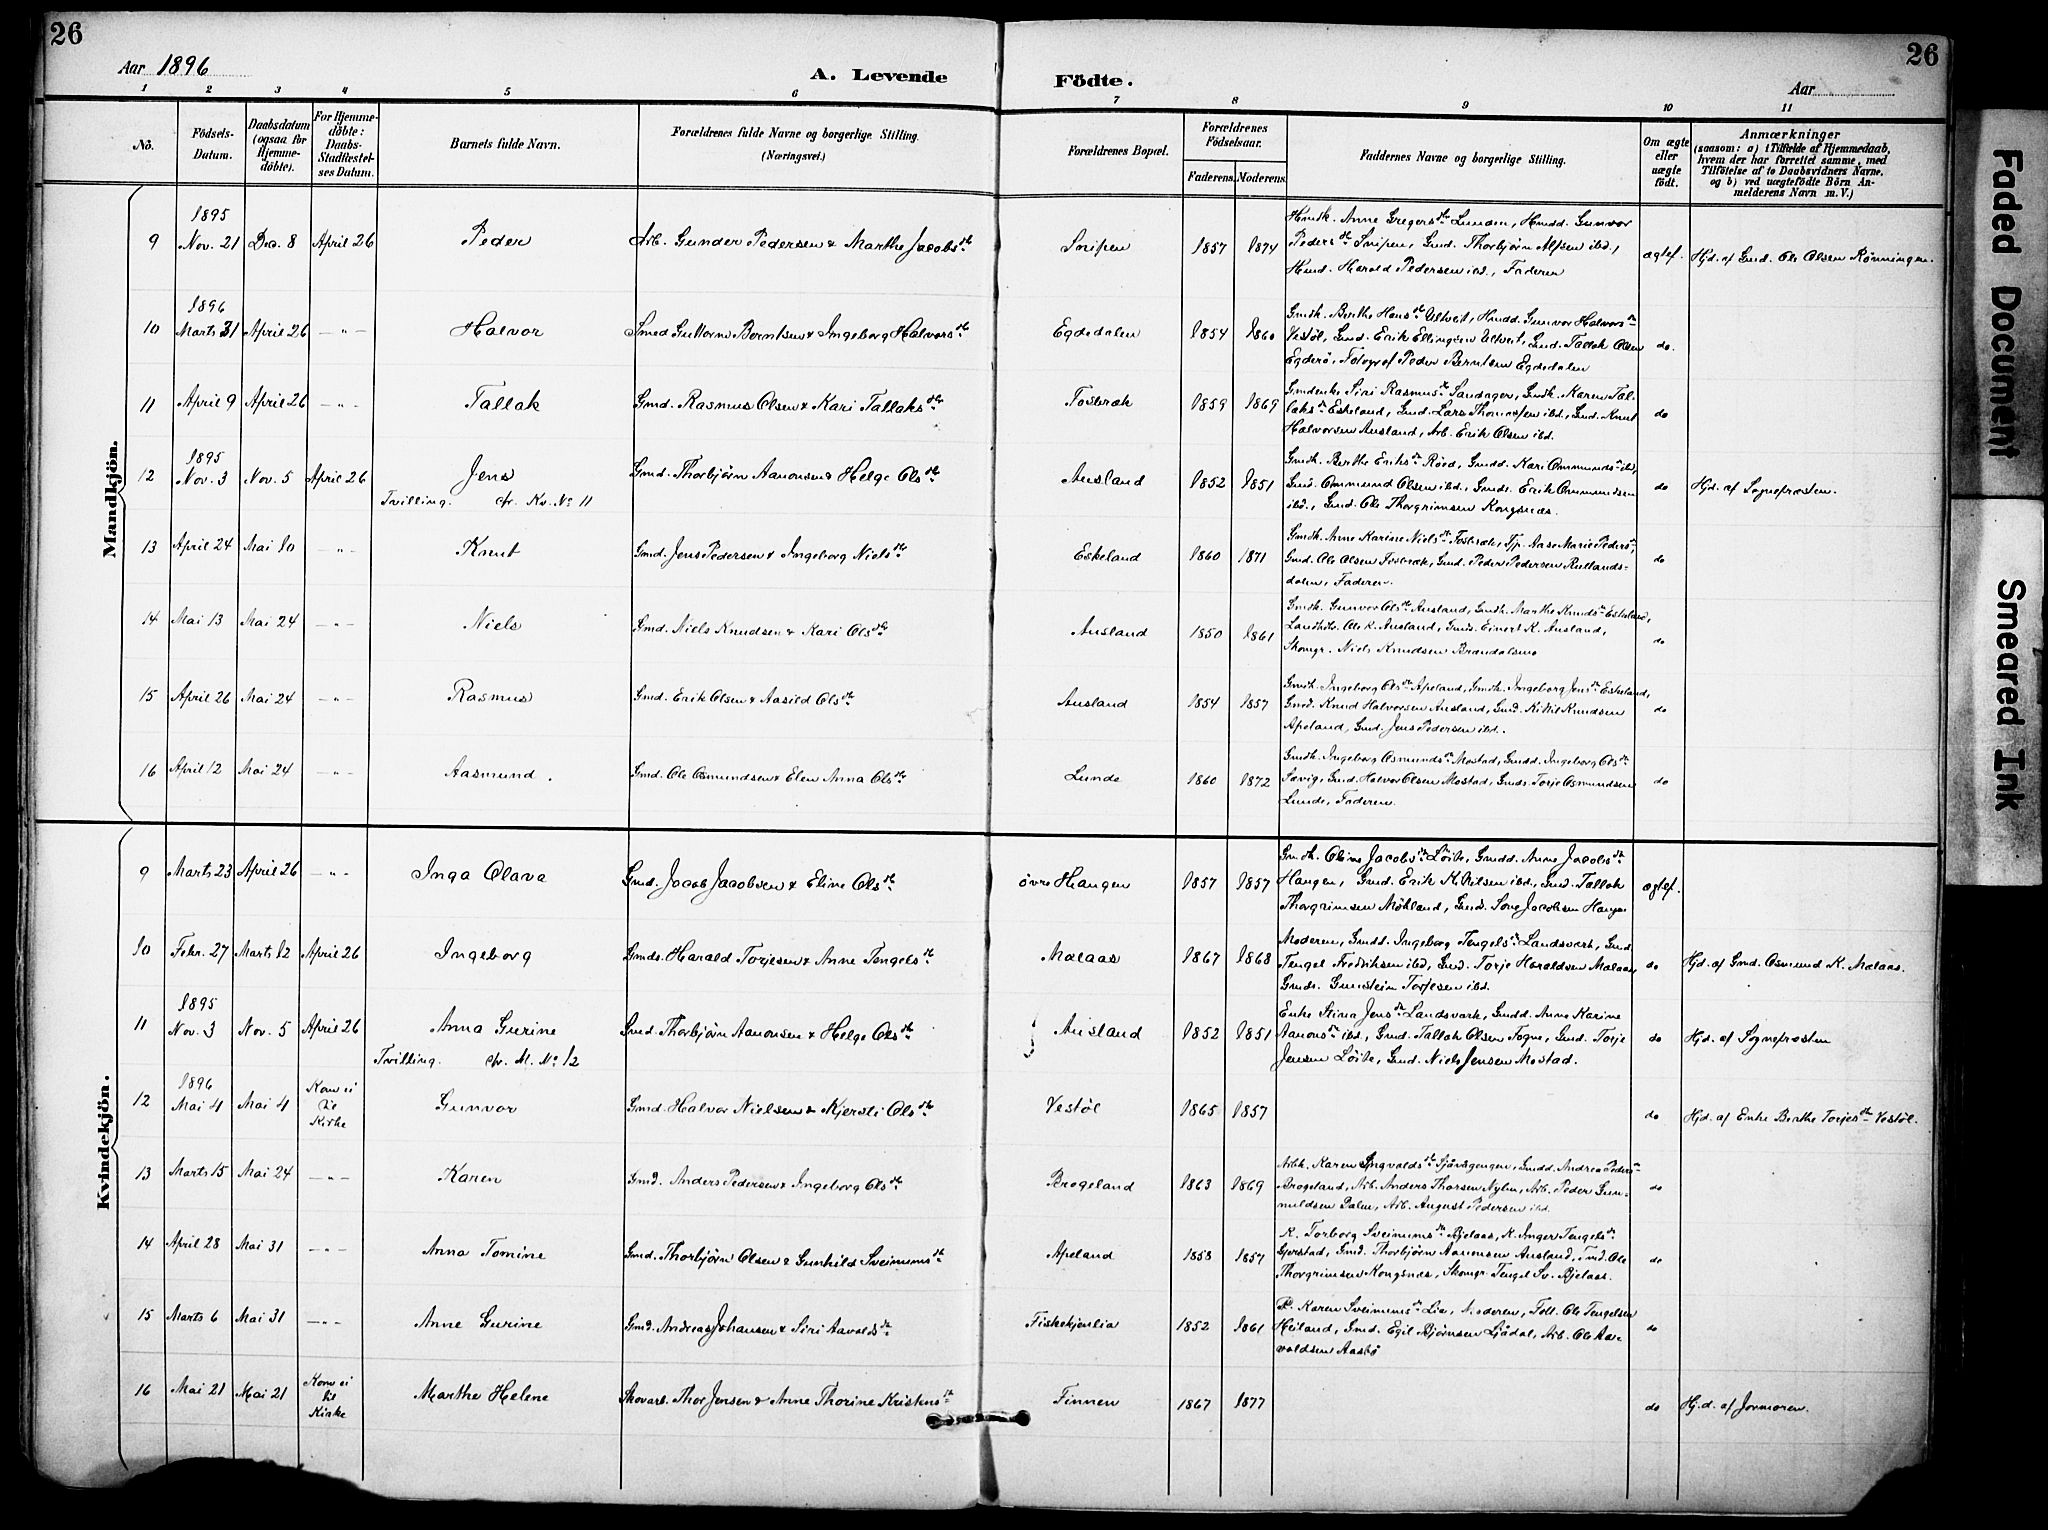 26
26
Aar 1896
A. Levende
Födte.
Aar
1 2 3 4 5 6 7 8 9 10 11
No.
Födsels-
Datum.
Daabsdatum
(ogsaa for
Hjemme-
döbte).
For Hjemme-
döbte:
Daabs-
Stadfæstel-
ses Datum.
Barnets fulde Navn.
Forældrenes fulde Navne og borgerlige Stilling.
(Næringsvei.)
Forældrenes Bopæl.
Forældrenes
Födselsaar.
Faderens. Moderens.
Faddernes Navne og borgerlige Stilling.
Om ægte
eller
uægte
födt.
Anmærkninger
(saasom: a) i Tilfælde af Hjemmedaab,
hvem der har forrettet samme, med
Tilföielse af to Daabsvidners Navne.
og b) ved uægtefödte Börn An-
melderens Navn m. V.)
Mandkjön.
1895
9 Nov. 21 Dec. 8 April 26 Peder Arb. Gunder Pedersen & Marthe Jacobsdtr Snipen 1857 1874
Hmdk. Anne Gregersdtr Lunden, Hmdd. Gunvor
Pedersdtr Snipen, Gmd. Thorbjørn Alfsen ibd.,
Hmd. Harald Pedersen ibd., Faderen
ægtef. Hjd. af Gmd. Ole Olsen Rønningen.
1896
10 Marts 31 April 26 — " — Halvor Smed Guttorm Berntsen & Ingeborg Halvorsdtr Egdedalen 1854 1860
Gmdk. Berthe Hansdtr Ulveit, Hmdd. Gunvor Halvorsdtr
Vestøl, Gmd. Erik Ellingsen Ulveit, Gmd. Tallak Olsen
Egderø, Fotograf Peder Berntsen Egdedalen
do.
11 April 9 April 26 — " — Tallak Gmd. Rasmus Olsen & Kari Tallaksdtr Fosbræk 1859 1869
Gmdenke Siri Rasmusdtr Sandager, Gmdk. Karen Tal-
laksdtr Eskeland, Gmd. Lars Thomassen ibd., Gmd. Knut
Halvorsen Ausland, Arb. Erik Olsen ibd.
do
1895
12 Nov. 3 Nov. 5 April 26 Jens Gmd. Thorbjørn Aanonsen & Helge Olsdtr Ausland 1852 1851
Tvilling. cfr. Kv. No 11
Gmdk. Berthe Eriksdtr Røed, Gmdd. Kari Ommundsdtr ibd,
Gmd. Ommund Olsen ibd., Gmds. Erik Ommundsen
ibd., Gmd. Ole Thorgrimsen Kongsnæs.
do Hjd. af Sognepræsten.
13 April 24 Mai 10 — " — Knut Gmd. Jens Pedersen & Ingeborg Nielsdtr Eskeland 1860 1871
Gmdk. Anne Karine Nielsdtr Fosbræk, Tjp. Aase Marie Pedersdtr,
Gmd. Ole Olsen Fosbræk, Gmd. Peder Pedersen Rutlands-
dalen, Faderen.
do
14 Mai 13 Mai 24 — " — Niels Gmd. Niels Knudsen & Kari Olsdtr Ausland 1850 1861
Gmdk. Gunvor Olsdtr Ausland, Gmdk. Marthe Knudsdtr Eskeland,
Landhdl. Ole K. Ausland, Gmds. Einert K. Ausland,
Skomgr. Niels Knudsen Brændalsmo
do
15 April 26 Mai 24 — " — Rasmus Gmd. Erik Olsen & Aasild Olsdtr Ausland 1854 1857
Gmdk. Ingeborg Olsdtr Apeland, Gmdk. Ingeborg Jensdtr Eskeland,
Gmd. Knud Halvorsen Ausland, Gmd. Kittil Knudsen
Apeland, Gmd. Jens Pedersen ibd.
do
16 April 12 Mai 24 — " — Aasmund. Gmd. Ole Osmundsen & Elen Anna Olsdtr Lunde 1860 1872
Gmdk. Ingeborg Osmundsdtr Mostad, Gmdd. Ingeborg Olsdtr
Savig, Gmd. Halvor Olsen Mostad, Gmds. Torje Osmundsen
Lunde, Faderen.
do
Kvindekjön.
9 Marts 23 April 26 — " — Inga Olava Gmd. Jacob Jacobsen & Eline Olsdtr øvre Haugen 1857 1857
Gmdk. Oline Jacobsdtr Løite, Gmdd. Anne Jacobsdtr
Haugen, Gmd. Erik K. Nilsen ibd., Gmd. Tallak
Thorgrimsen Møkland, Gmds. Sove Jacobsen Haugen
ægtef.
10 Febr. 27 Marts 12 April 26 Ingeborg Gmds. Harald Torjesen & Anne Tengelsdtr Malaas 1867 1868
Moderen, Gmdd. Ingeborg Tengelsdtr Landsværk, Gmd.
Tengel Fredriksen ibd, Gmd. Torje Haraldsen Malaas,
Gmds. Gunstein Torjesen ibd.
do Hjd. af Gmd. Osmund K. Malaas.
1895
11 Nov. 3 Nov. 5 April 26 Anna Gurine Gmd. Thorbjørn Aanonsen & Helge Olsdtr Ausland 1852 1851
Tvilling. cfr. M. No 12
Enke Stina Jensdtr Landsværk, Gmdd. Anne Karine
Aanonsdtr ibd., Gmd. Tallak Olsen Fogne, Gmd. Torje
Jensen Løite, Gmd. Niels Jensen Mostad.
do Hjd. af Sognepræsten
1896
12 Mai 4 Mai 4 Kom ei
til
Kirke
Gunvor Gmd. Halvor Nielsen & Kjersti Olsdtr Vestøl 1865 1857 do Hjd. af Enke Berthe Torjesdtr Vestøl.
13 Marts 15 Mai 24 — " — Karen Gmd. Anders Pedersen & Ingeborg Olsdtr Brøgeland 1863 1869
Arbk. Karen Ingvaldsdtr Sjåvågengen, Gmdd. Andrea Pedersdtr
Brøgeland, Arb. Anders Thorsen Nylen, Arb. Peder Gun-
nuldsen Dalen, Arb. August Pedersen ibd.
do
14 April 28 Mai 31 — " — Anna Tomine Gmd. Thorbjørn Olsen & Gunhild Sveinumsdtr Apeland 1853 1857
K. Torborg Sveinumsdtr Bjelaas, K. Inger Tengelsdtr
Gjerstad, Gmd. Thorbjørn Aanonsen Ausland, Gmd. Ole
Thorgrimsen Kongsnæs, Skomgr. Tengel Sv. Bjelaas.
do
15 Marts 6 Mai 31 — " — Anne Gurine Gmd. Andreas Johansen & Siri Aavoldsdtr Fiskekjenlia 1852 1861
P. Karen Sveinumsdtr Lia, Moderen, Foll. Ole Tengelsen
Heiland, Gmd. Egil Bjørnsen Ljødal, Arb. Ole Aa-
valdsen Aasbø
do
16 Mai 21 Mai 21 Kom ei
til
Kirke
Marthe Helene Skovarb. Thor Jensen & Anne Thorine Kristensdtr Finnen 1867 1877 do Hjd. af Jormoren.
Faded Document
Smeared Ink